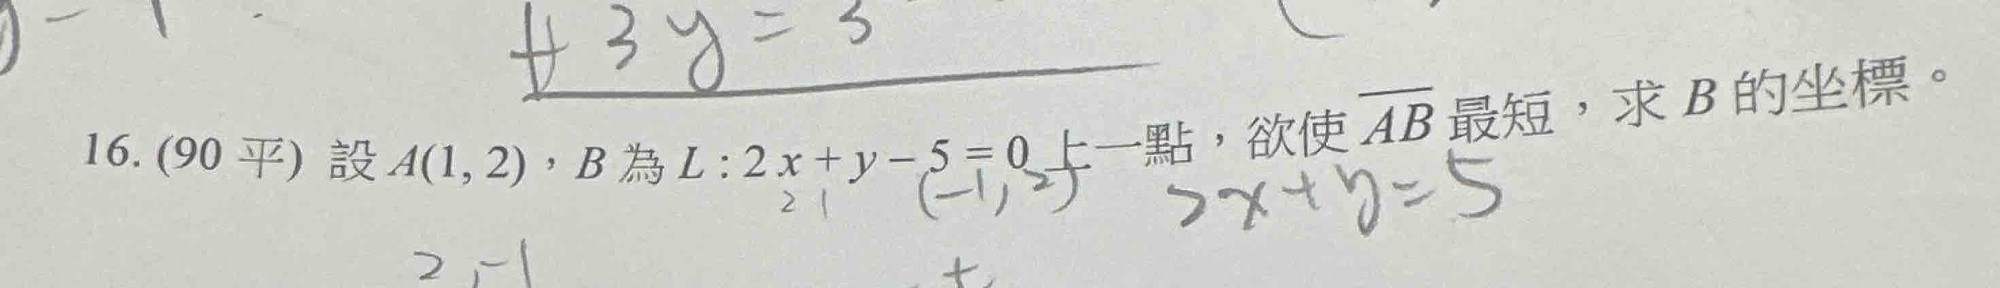 + 3y = 3
16. (90 平) 設 A(1, 2)，B 為 L : 2x + y − 5 = 0 上一點，欲使 AB 最短，求 B 的坐標。
2 1 (−1, 2) 2x+y=5
2, −1